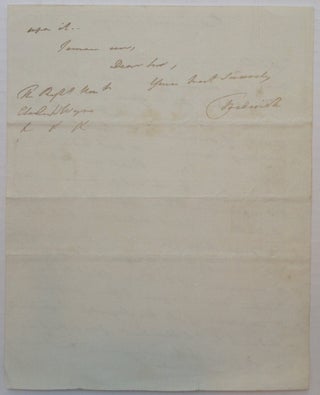 upon it.
I remain ever,
Dear Sir,
Yours most Sincerely
The Right Hon.
Charles W. Wynn